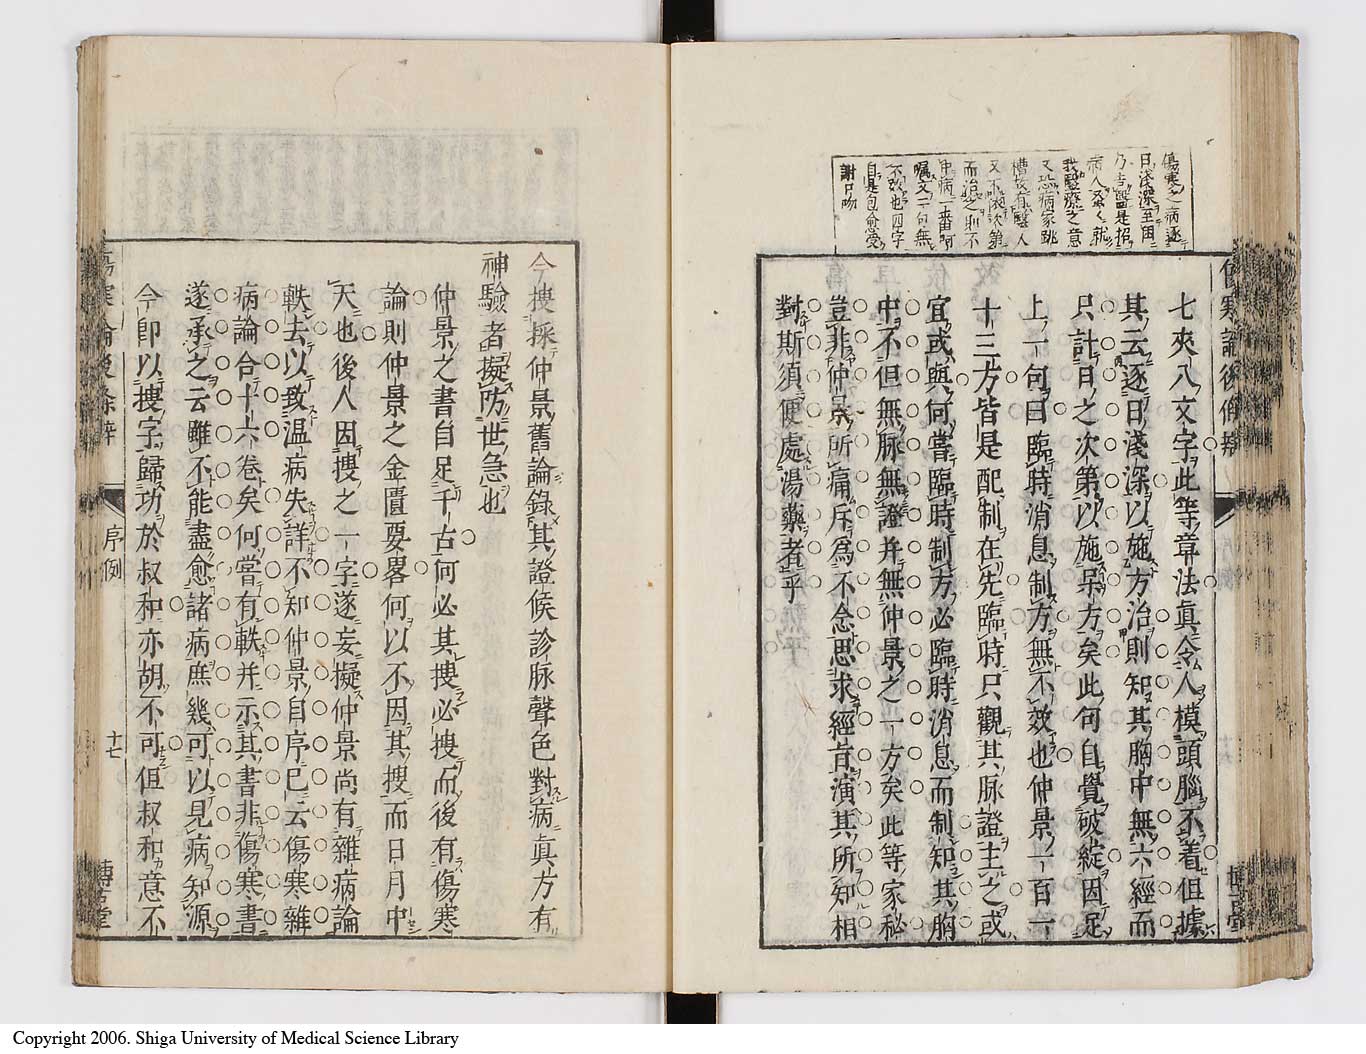 傷寒之病逐
日淺深至困
乃告醫是招
病人
我醫療之意
又恐病家跳
槽故有醫人
又不依次第
而治之則不
中病一番叮
囑文一句無
不效也四字
自是包愈受
謝口吻
七夾八文字此等章法眞令人模頭腦不着但據
其云逐日淺深以施方治則知其胸中無六經而
只計日之次第以施呆方矣此何自覺破綻因足
上一句曰臨時消息制方無不效也仲景一百一
十三方皆是配制在先臨時只觀其脉證主之或
宜或與何嘗臨時制方必臨時消息而制知其胸
中不但無脉無證并無仲景之一方矣此等家秘
豈非仲景所痛斥爲不念思求經旨演其所知相
對斯須便處湯藥者乎
今搜採仲景舊論錄其證候診脉聲色對病眞方有
神驗者擬防世急也
仲景之書自足千古何必其搜必搜而後有傷寒
論則仲景之金匱要畧何以不因其搜而日月中
天也後人因搜之一字遂妄擬仲景尚有雜病論
軼去以致温病失詳不知仲景自序已云傷寒雜
病論合十六卷矣何嘗有軼并示其書非傷寒書
遂承之云雖不能盡愈諸病庶幾可以見病知源
今卽以搜字歸功於叔和亦胡不可但叔和意不
傷寒論後條辨
序例
十七
博古堂
Copyright 2006. Shiga University of Medical Science Library